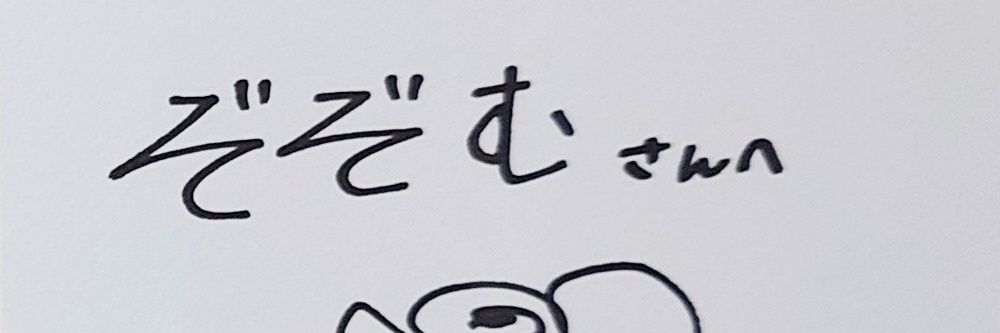 ぞぞむさんへ